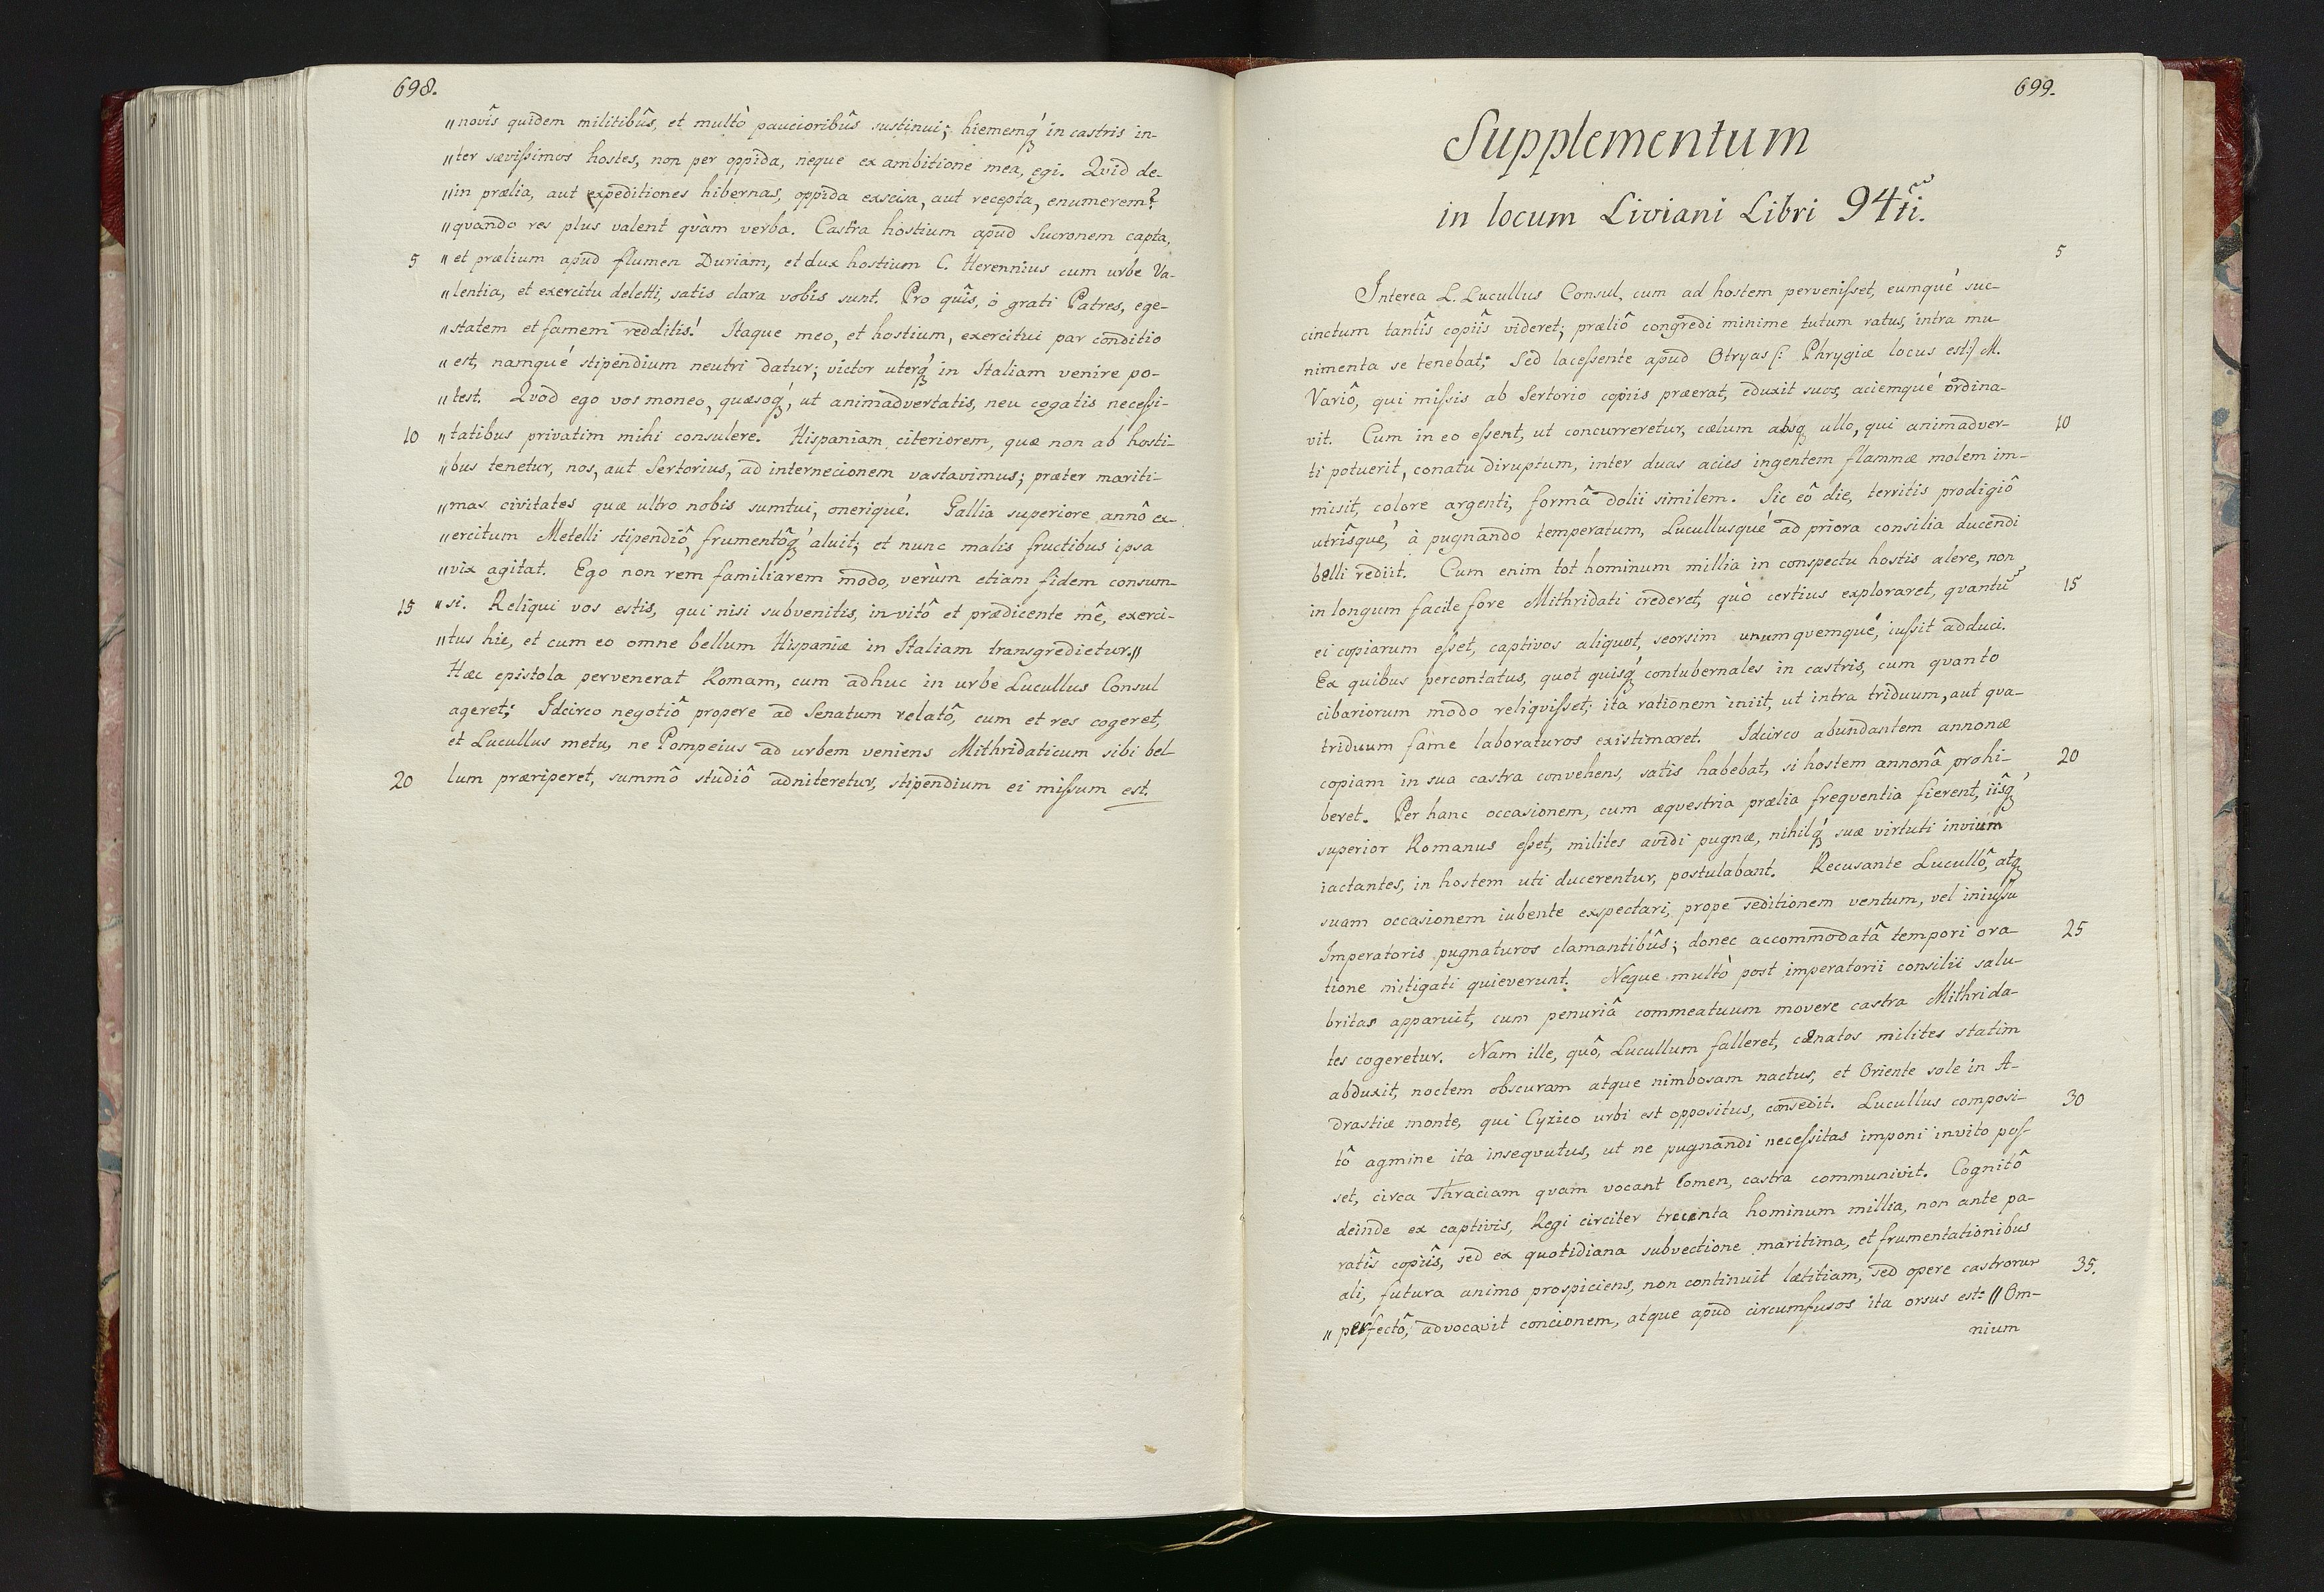 698.
〃novîs quidem militibûs, et multò paucioribûs sustinui; hiememq́ꝫ in castris in-
〃ter sævissimos hostes, non per oppida, neque ex ambitione mea, egi. Quid de-
〃in prælia, aut expeditiones hibernas, oppida exscisa, aut recepta, enumerem?
〃quando res plus valent quàm verba. Castra hostium apud Sucronem capta,
5 〃et prælium apud flumen Duriam, et dux hostium C. Herennius cum urbe Va-
〃lentia, et exercitu deletti, satis clara vobis sunt. Pro quîs, ò grati Patres, ege-
〃statem et famem redditis! Itaque meo, et hostium, exercitui par conditio
〃est, namqué stipendium neutri datur; victor uterq́ꝫ in Italiam venire po-
〃test. Quod ego vos moneo, quæsoq́ꝫ, ut animadvertatis, neu cogatis necessi-
10 〃tatibus privatim mihi consulere. Hispaniam citeriorem, quæ non ab hosti-
〃bus tenetur, nos, aut Sertorius, ad internecionem vastavimus; præter mariti-
〃mas civitates quæ ultro nobis sumtui, oneriqué. Gallia superiore annô ex-
〃ercitum Metelli stipendiô, frumentôq́ꝫ aluit; et nunc malis fructibus ipsa
〃vix agitat. Ego non rem familiarem modo, verùm etiam fidem consum-
15 〃si. Reliqui vos estis, qui nisi subvenitis, invitô et prædicente mê, exerci-
〃tus hic, et cum eo omne bellum Hispaniæ in Italiam transgredietur.〃
Hæc epistola pervenerat Romam, cum adhuc in urbe Lucullus Consul
ageret; Idcirco negotiô propere ad Senatum relatô, cum et res cogeret,
et Lucullus metu, ne Pompeius ad urbem veniens Mithridaticum sibi bel-
20 lum præriperet, summô studiô adniteretur, stipendium ei missum est.
699.
Supplementum
in locum Liviani Libri 94ti.
5
Interea L. Lucullus Consul, cum ad hostem pervenisset, eumqué suc-
cinctum tantîs copiîs videret; præliô congredi minime tutum ratus, intra mu-
nimenta se tenebat; Sed lacessente apud Otryas /: Phrygiæ locus est:/ M.
Variô, qui missis ab Sertorio copiis præerat, eduxit suos, aciemqué ordina-
vit. Cum in eo essent, ut concurreretur, cælum absqꝫ ullo, qui animadver- 10
ti potuerit, conatu diruptum, inter duas acies ingentem flammæ molem im-
misit, colore argenti, formâ dolii similem. Sic eô die, territis prodigiô
utrîsqué, à pugnando temperatum, Lucullusqué ad priora consilia ducendi
belli rediit. Cum enim tot hominum millia in conspectu hostis alere, non
in longum facile fore Mithridati crederet, quò certius exploraret, quantũ 15
ei copiarum esset, captivos aliquot, seorsim unumquemqué, iussit adduci.
Ex quibus percontatus, quot quisq́ꝫ contubernales in castris, cum quanto
cibariorum modo reliquisset; ita rationem iniit, ut intra triduum, aut qua-
triduum fame laboraturos existimaret. Idcirco abundantem annonæ
copiam in sua castra convehens, satis habebat, si hostem annonâ prohi- 20
beret. Per hanc occasionem, cum æquestria prælia frequentia fierent, iîsq́ꝫ
superior Romanus esset, milites avidi pugnæ, nihilq́ꝫ suæ virtuti invium
iactantes, in hostem uti ducerentur, postulabant. Recusante Lucullô, atqꝫ
suam occasionem iubente exspectari, prope seditionem ventum, vel iniussu
Imperatoris pugnaturos clamantibûs; donec accommodatâ tempori ora- 25
tione mitigati quieverunt. Neque multò post imperatorii consilii salu-
britas apparuit, cum penuriâ commeatuum movere castra Mithrida-
tes cogeretur. Nam ille, quô, Lucullum falleret, cænatos milites statim
abduxit, noctem obscuram atque nimbosam nactus, et Oriente sole in A-
drastiæ monte, qui Cyzico urbi est oppositus, consedit. Lucullus composi- 30
tô agmine ita insequutus, ut ne pugnandi necessitas imponi invito pos-
set, circa Thraciam quam vocant Comen, castra communivit. Cognitô
deinde ex captivis, Regi circiter trecenta hominum millia, non ante pa-
ratîs copiîs, sed ex quotidiana subvectione maritima, et frumentationibus
ali, futura animo prospiciens, non continuit lætitiam, sed opere castrorum 35.
〃perfectô, advocavit concionem, atque apud circumfusos ita orsus est: 〃Om-
nium